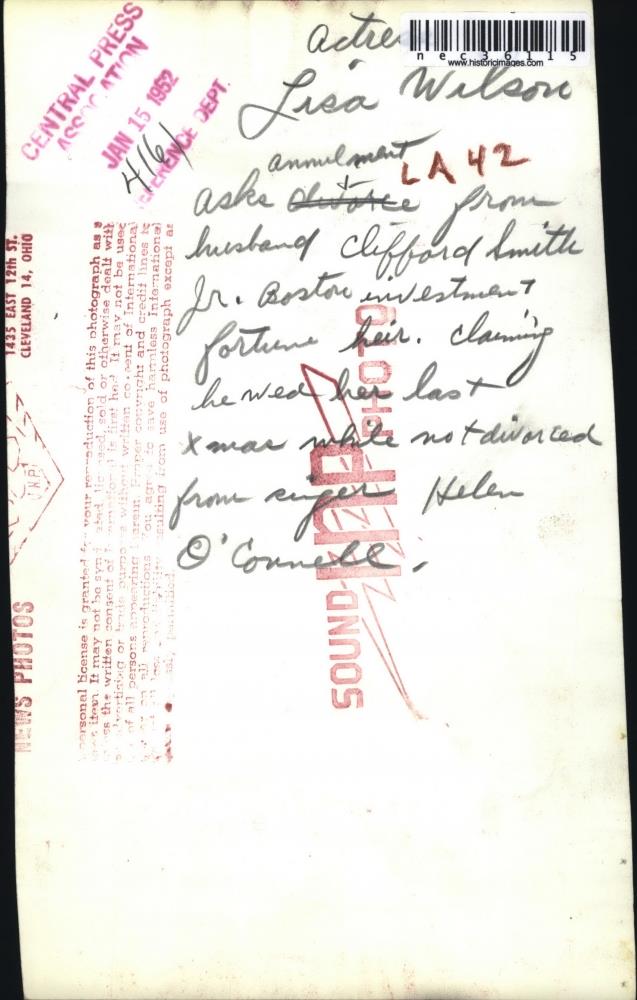 actre
nec36115
www.historicimages.com
Lisa Wilson
annulment
LA 42
asks divorce from
husband Clifford Smith
Jr. Boston investment
fortune heir. claiming
he wed her last
xmas while not divorced
from singer Helen
O'Connell.
CENTRAL PRESS
ASSOCIATION
JAN 15 1952
REFERENCE DEPT.
4161
1435 EAST 12th ST.
CLEVELAND 14, OHIO
I.N.P.
NEWS PHOTOS
personal license is granted for your reproduction of this photograph as a
news item. It may not be sold or otherwise dealt with
the written consent of International first had. It may not be used
advertising or trade purposes without written consent of International
of all persons appearing therein. Proper copyright and credit lines
on all reproductions. You agree to save harmless International
resulting from use of photograph except as
SOUND
PHOTO